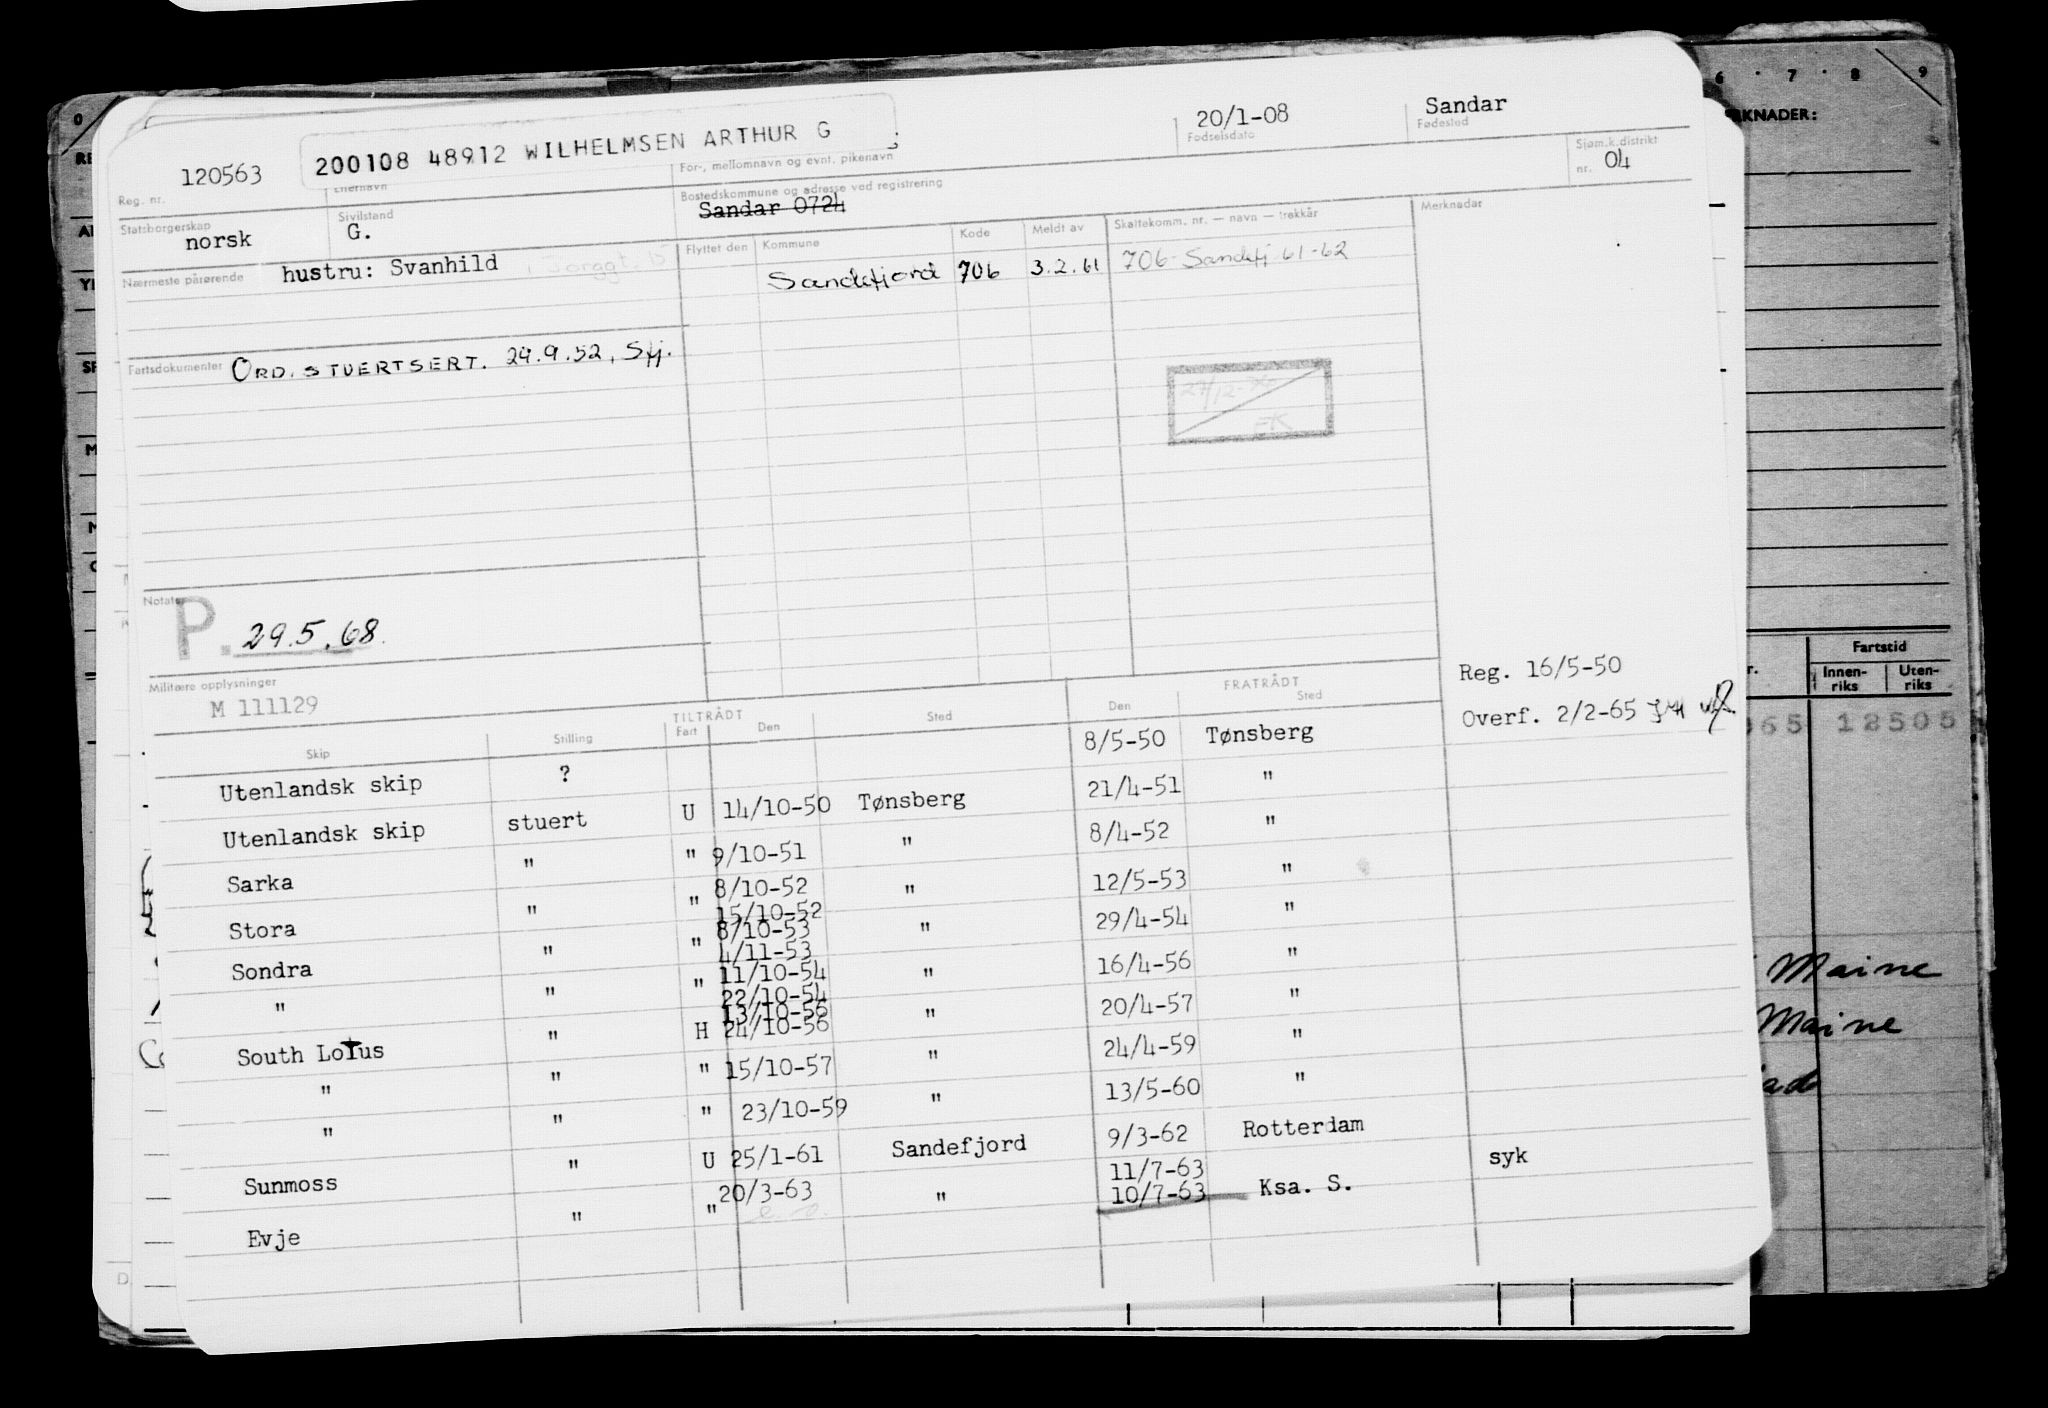 200108 48912 WILHELMSEN ARTHUR G
20/1-08
Sandar
Fødselsdato
Fødested
120563
Reg. nr.
Etternavn
For-, mellomnavn og evnt. pikenavn
Sjøm.k.distrikt
nr. 04
Statsborgerskap
norsk
Sivilstand
G.
Bostedskommune og adresse ved registrering
Sandar 0724
Nærmeste pårørende
hustru: Svanhild
Flyttet den
Kommune
Kode
Meldt av
Skattekomm. nr. — navn — trekkår
Merknader
Sandefjord 706 3.2.61
706 Sandefj. 61-62
Fartsdokumenter
ORD. STUERTSERT. 29.9.52, Sfj.
27/12-
EK
Notater
P. 29.5.68.
Militære opplysninger
M 111129
Reg. 16/5-50
Overf. 2/2-65
TILTRÅDT
FRATRÅDT
Skip Stilling Fart Den Sted Den Sted
Utenlandsk skip ? 8/5-50 Tønsberg
Utenlandsk skip stuert U 14/10-50 Tønsberg 21/4-51 "
Sarka " " 9/10-51 " 8/4-52 "
Stora " " 8/10-52 " 12/5-53 "
15/10-52
Sondra " " 8/10-53 " 29/4-54 "
4/11-53
" " " 11/10-54 " 16/4-56 "
22/10-54
13/10-56
South Lotus " H 24/10-56 " 20/4-57 "
" " " 15/10-57 " 24/4-59 "
" " " 23/10-59 " 13/5-60 "
Sunmoss " U 25/1-61 Sandefjord 9/3-62 Rotterdam
Evje " " 20/3-63 " 11/7-63
10/7-63 Ksa. S. syk
6 7 8 9
0
KNADER:
Fartstid
Innen-
riks
Uten-
riks
065 12505
Maine
Maine